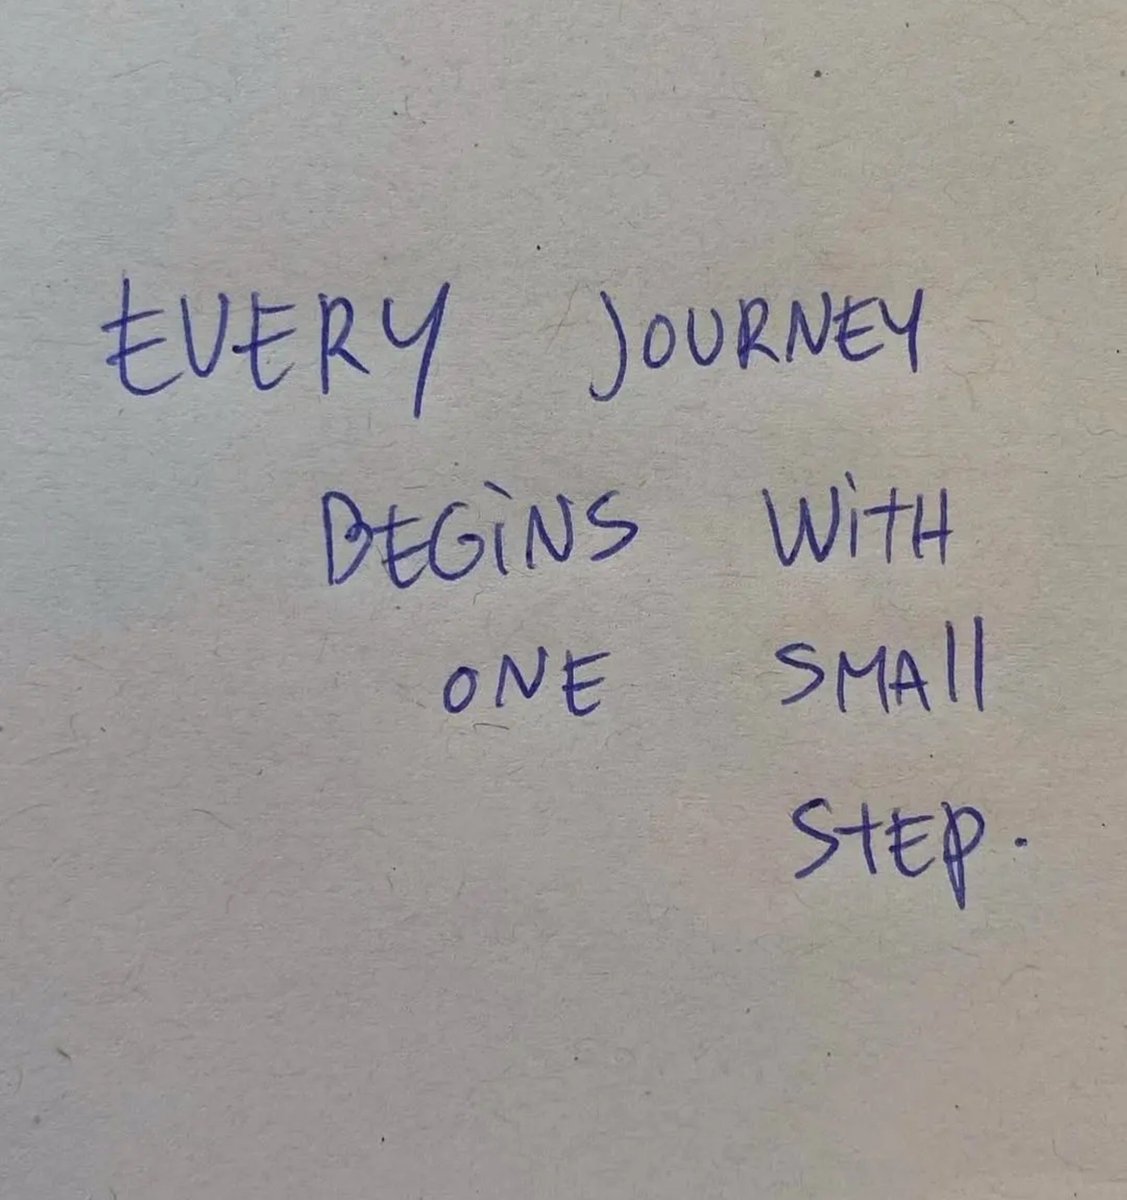 EVERY JOURNEY
BEGiNS WiTH
ONE SMAll
STEP.